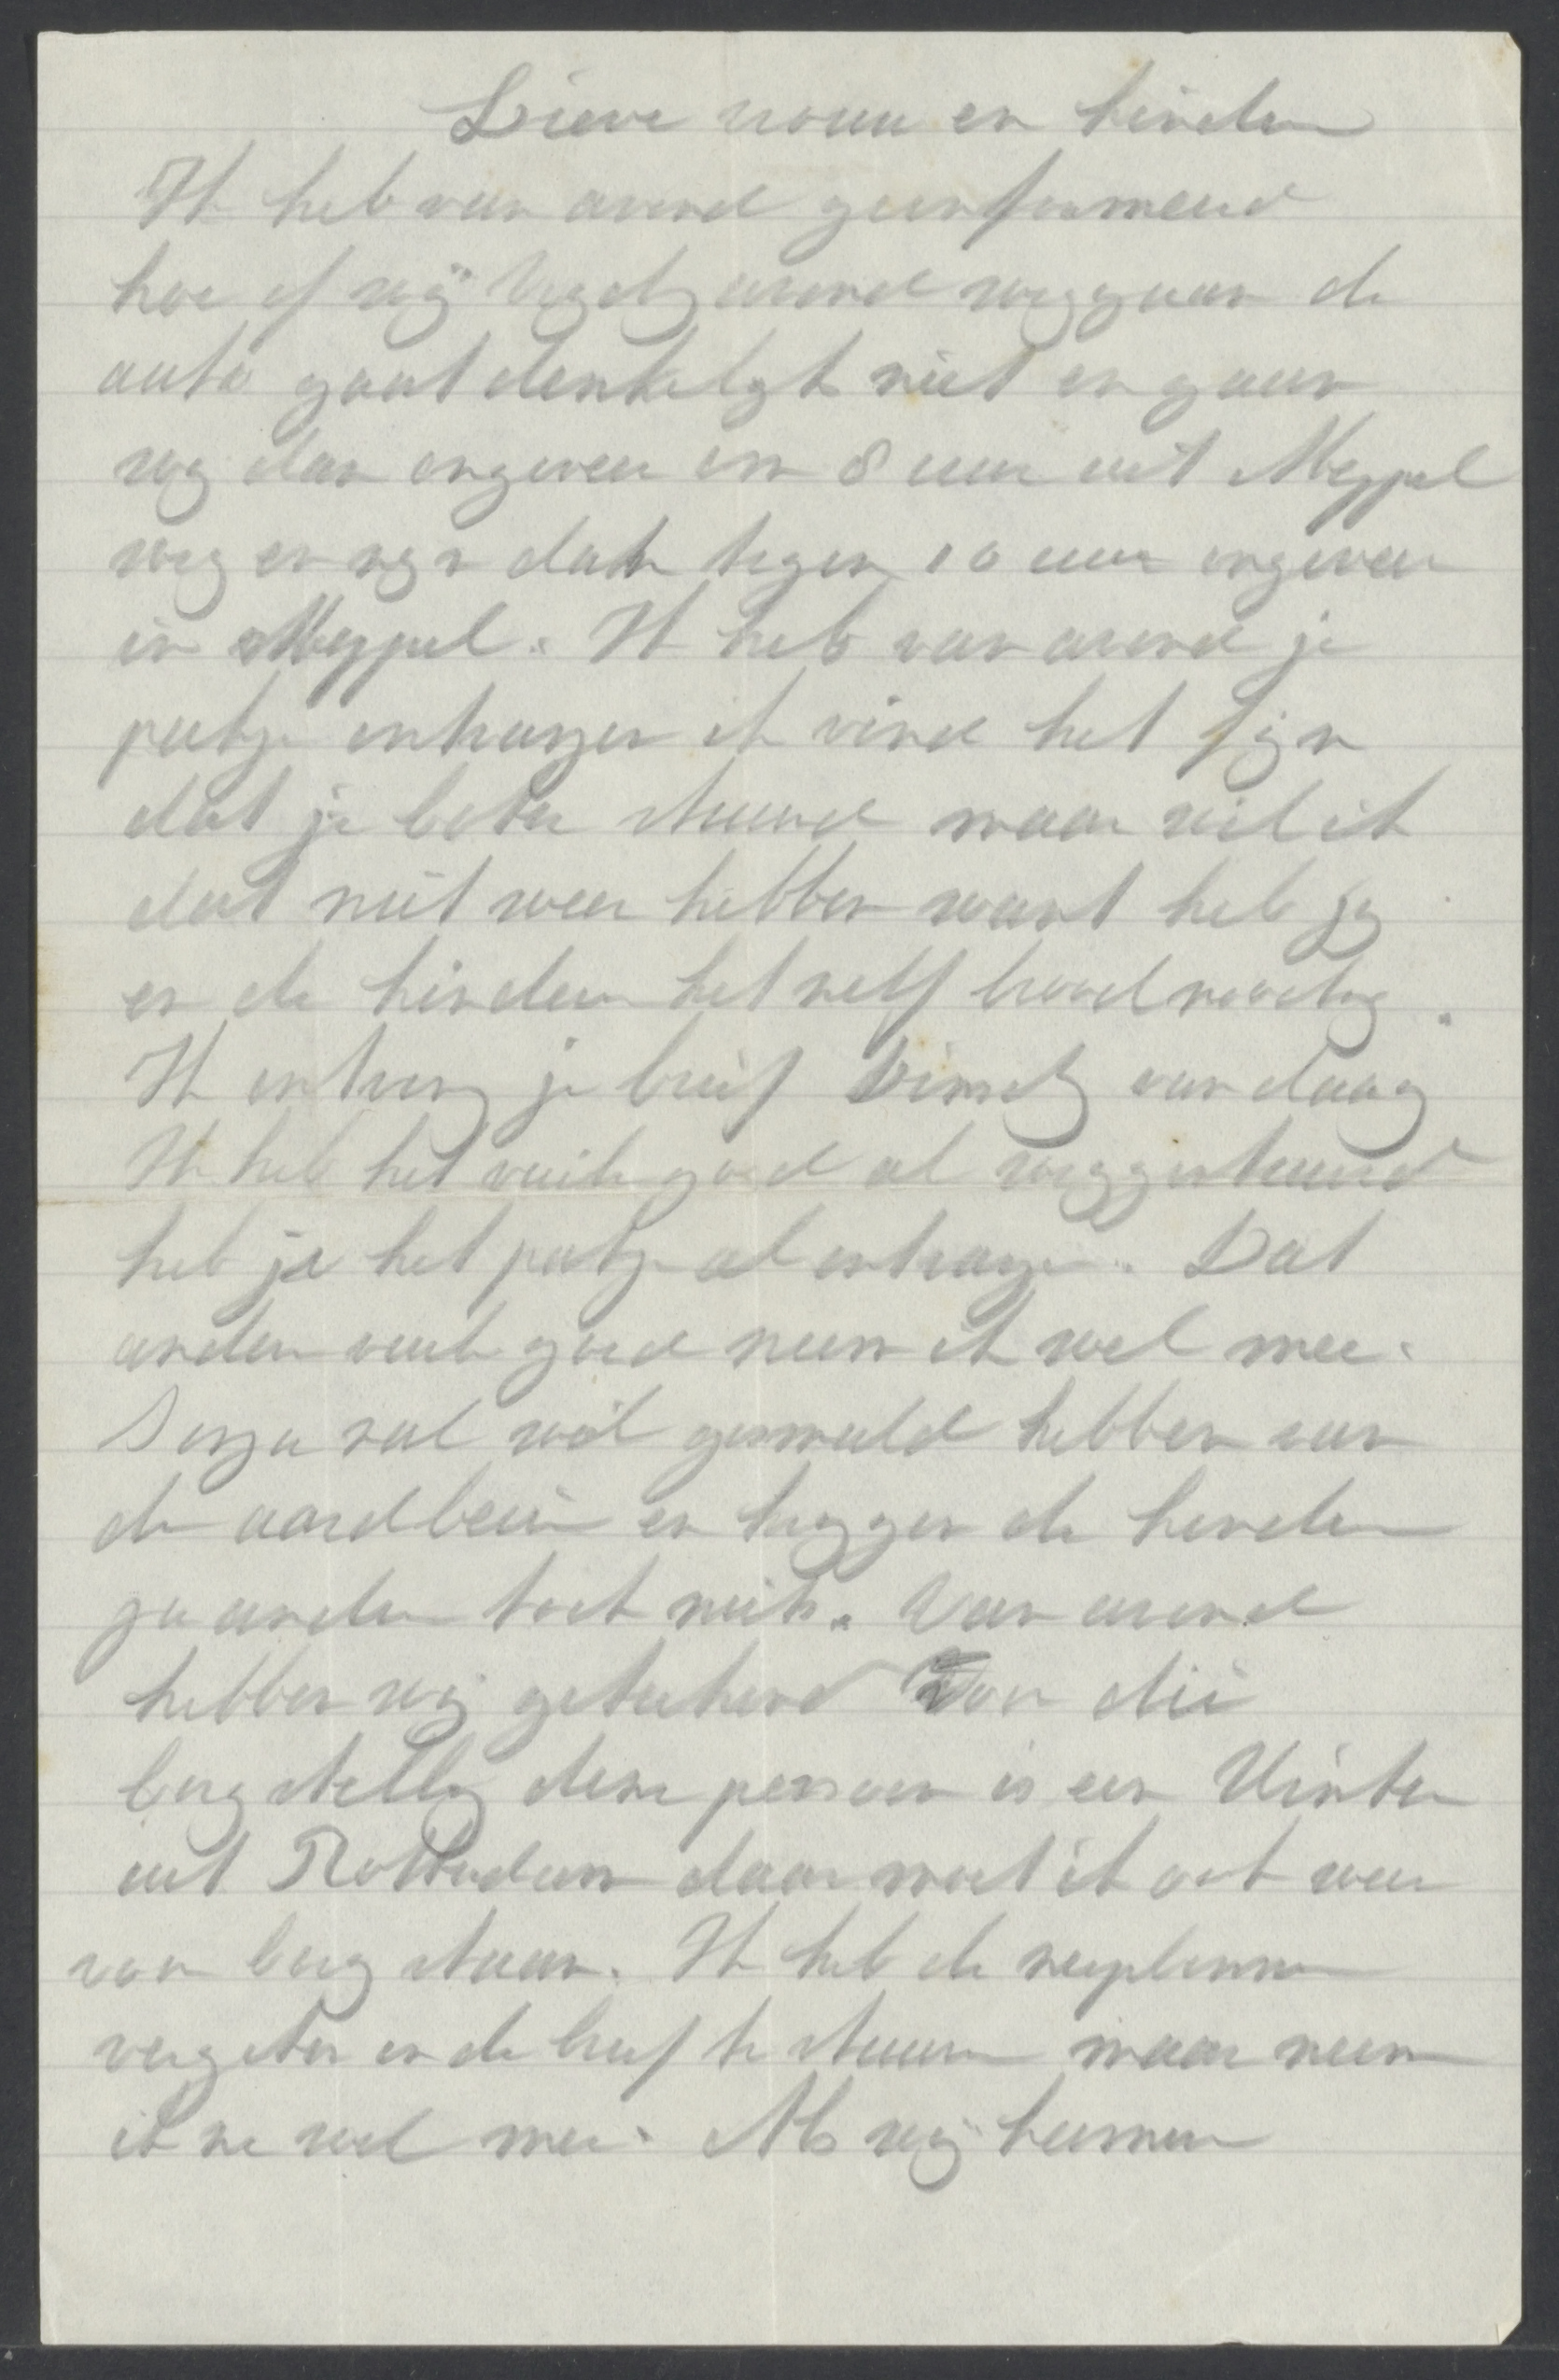 Lieve vrouw en kinderen
Ik heb van avond geinformeerd
hoe of wij Vrydagavond weggaan de
auto gaat denkelyk niet en gaan
wy dan ongeveer om 8 uur uit Meppel
weg en zyn dan tegen 10 uur ongeveer
in Meppel. Ik heb van avond je
pakje ontvangen ik vind het fyn
dat je boter stuurd maar wil ik
dat niet weer hebben want heb jy
en de kinderen het zelf broodnoodig.
Ik ontving je brief Dinsdag vandaag
Ik heb het vuile goed al weggestuurd
heb je het pakje al ontvangen. Dat
andere vuile goed neem ik wel mee.
zal wel gesmuld hebben van
de aardbeien en kregen de kinderen
je andere toch niets. Van avond
hebben wij getekend voor die
borgstelling deze persoon is een
uit Rotterdam daar moet ik ook weer
voor borg staan. Ik heb de
vergeten in de brief te sturen maar neem
ik ze wel mee. Als wij kunnen